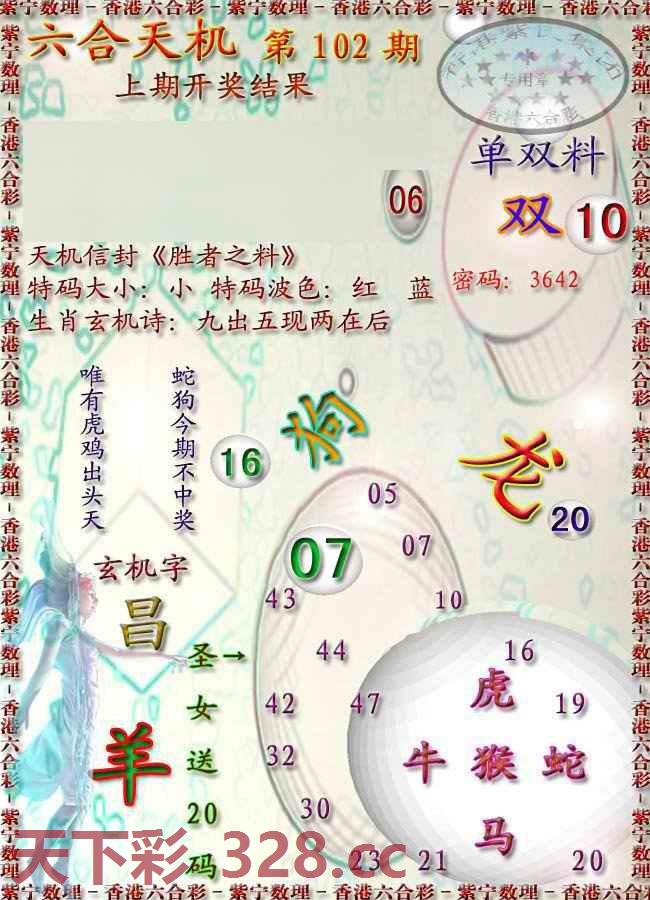 紫宁数理－香港六合彩－紫宁数理－香港六合彩－紫宁数理－香港六合彩－紫宁数理
六合天机 第 102 期
上期开奖结果
专用章
香港六合彩
单双料
06
双 10
天机信封《胜者之料》
特码大小：小 特码波色：红 蓝
密码：3642
生肖玄机诗：九出五现两在后
蛇狗今期不中奖
唯有虎鸡出头天
16
狗
龙
20
05
07
07
玄机字
昌
43
10
圣→
女
送
20
码
羊
44
16
虎
42
47
19
牛 猴 蛇
32
马
30
23
21
20
天下彩.328.cc
紫宁数理－香港六合彩－紫宁数理－香港六合彩－紫宁数理－香港六合彩－紫宁数理